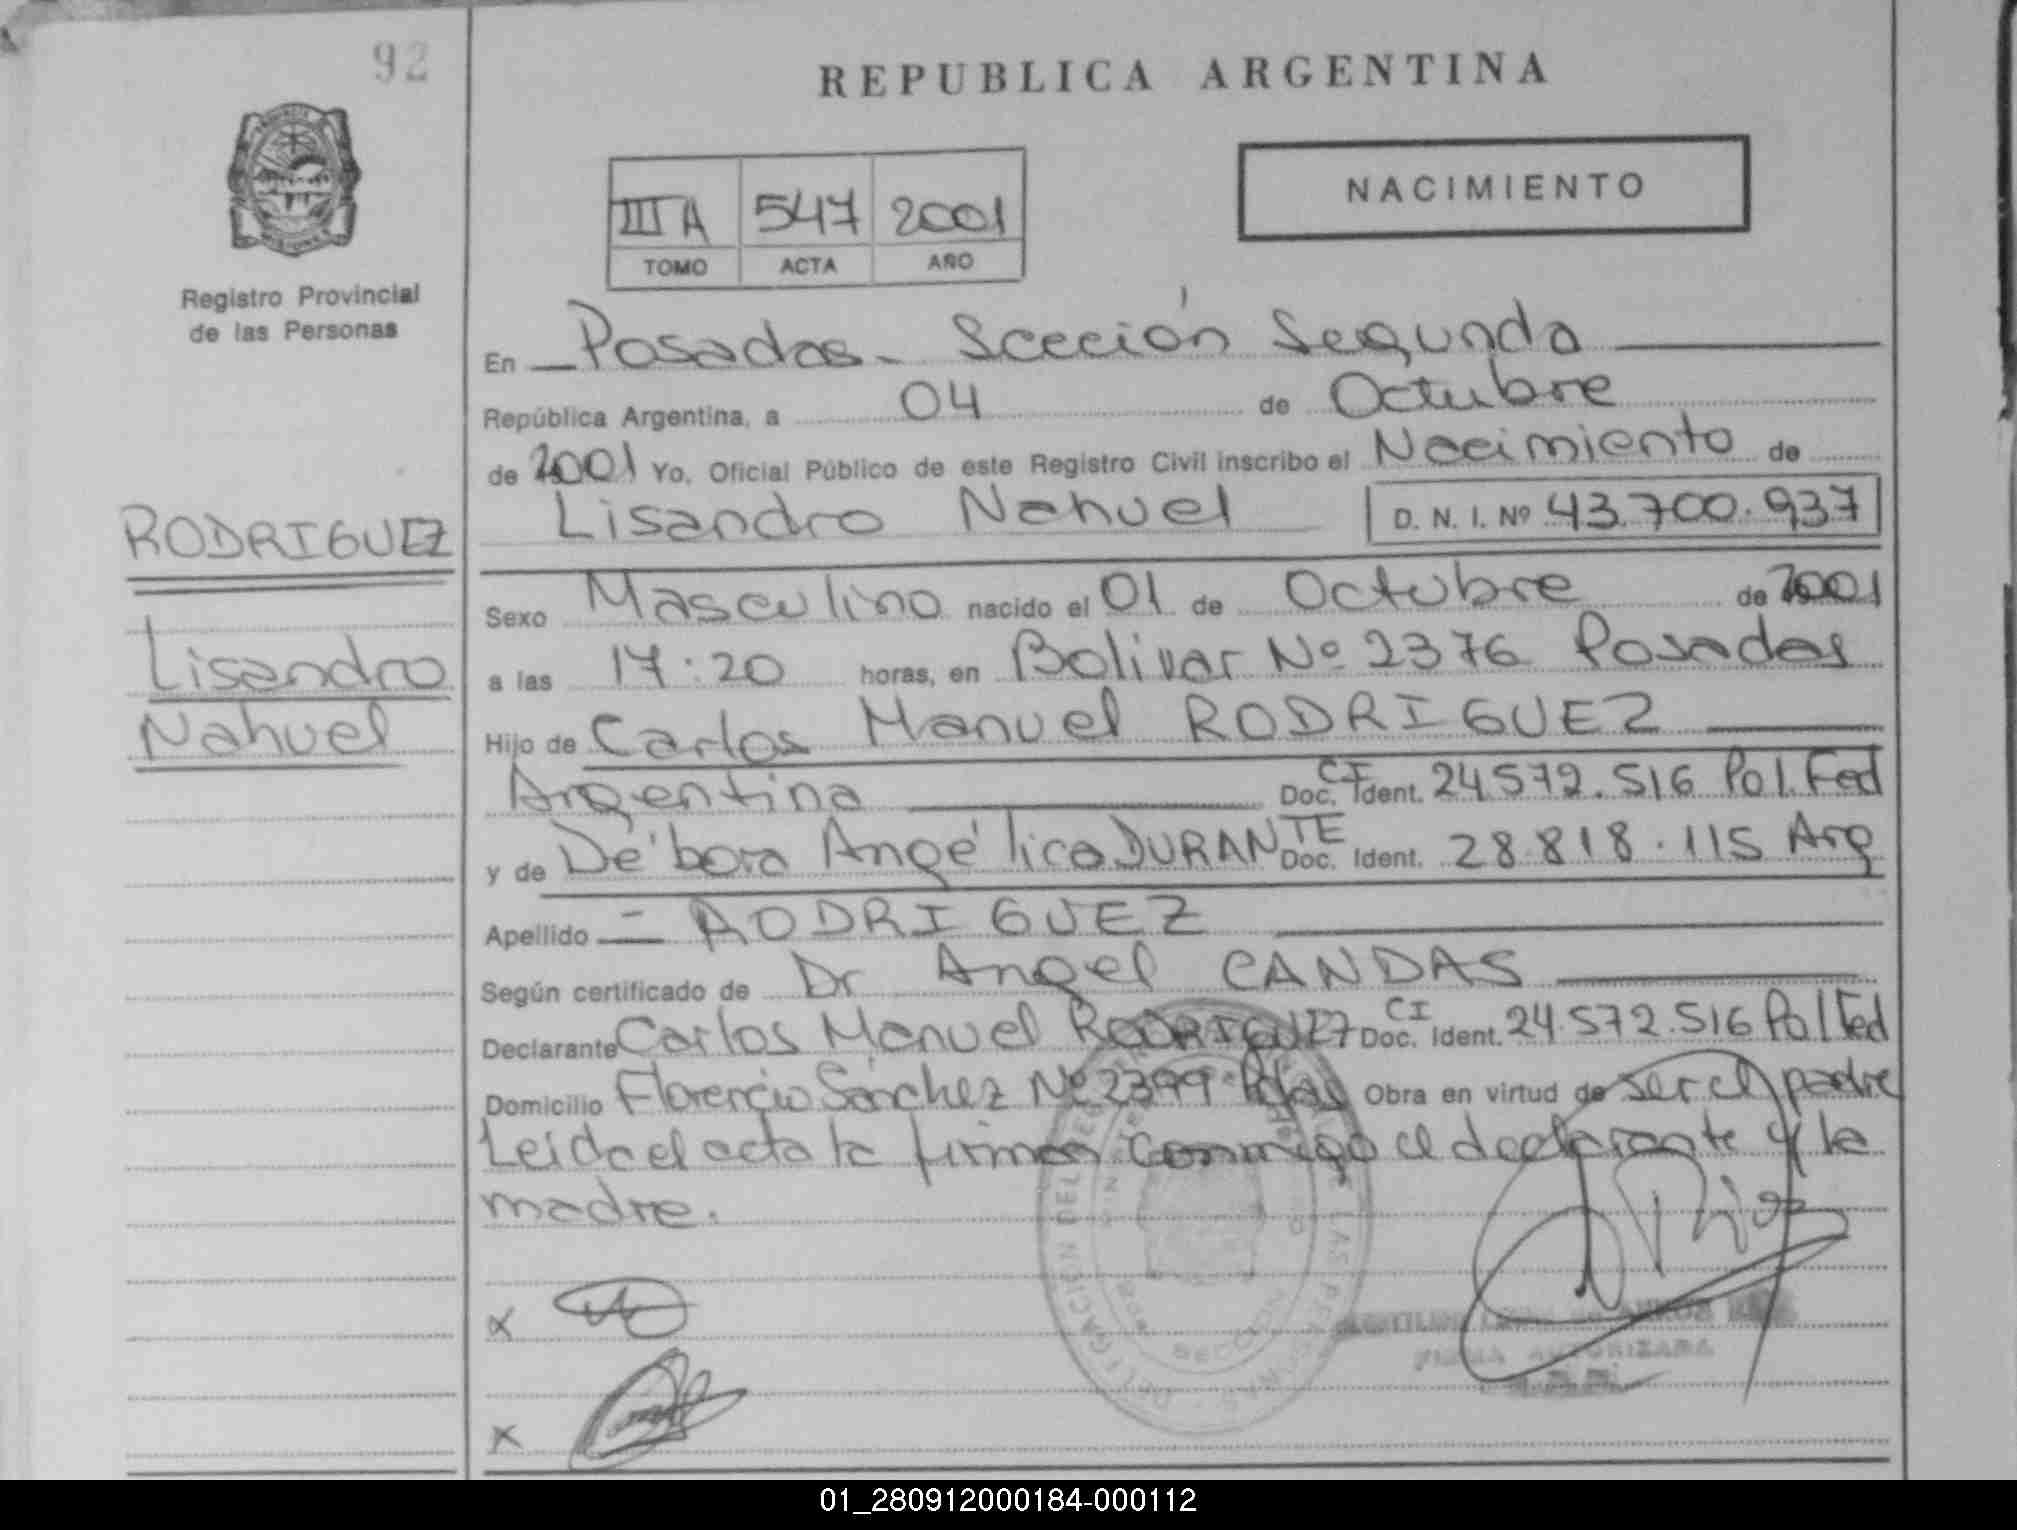 92
REPUBLICA ARGENTINA
NACIMIENTO
III A 547 2001
TOMO ACTA AÑO
Registro Provincial
de las Personas
En Posadas - Sección Segunda
República Argentina, a 04 de Octubre
de 2001 Yo, Oficial Público de este Registro Civil inscribo el Nacimiento de
Lisandro Nahuel D. N. I. Nº 43.700.937
RODRIGUEZ
Lisandro
Nahuel
Sexo Masculino nacido el 01 de Octubre de 2001
a las 17:20 horas, en Bolivar Nº 2376 Posadas
Hijo de Carlos Manuel RODRIGUEZ
Argentina CI Doc. Ident. 24.572.516 Pol. Fed
y de Débora Angélica DURANTE Doc. Ident. 28.818.115 Arg
Apellido = RODRIGUEZ
Según certificado de Dr Angel CANDAS
Declarante Carlos Manuel RODRIGUEZ CI Doc. Ident. 24.572.516 Pol Fed
Domicilio Florencio Sánchez Nº 2399 Pdas Obra en virtud de ser el padre
Leída el acta la firman conmigo el declarante y la
madre.
x
x
DELEGACION DEL REGISTRO
SECCION
FIRMA AUTORIZADA
01_280912000184-000112